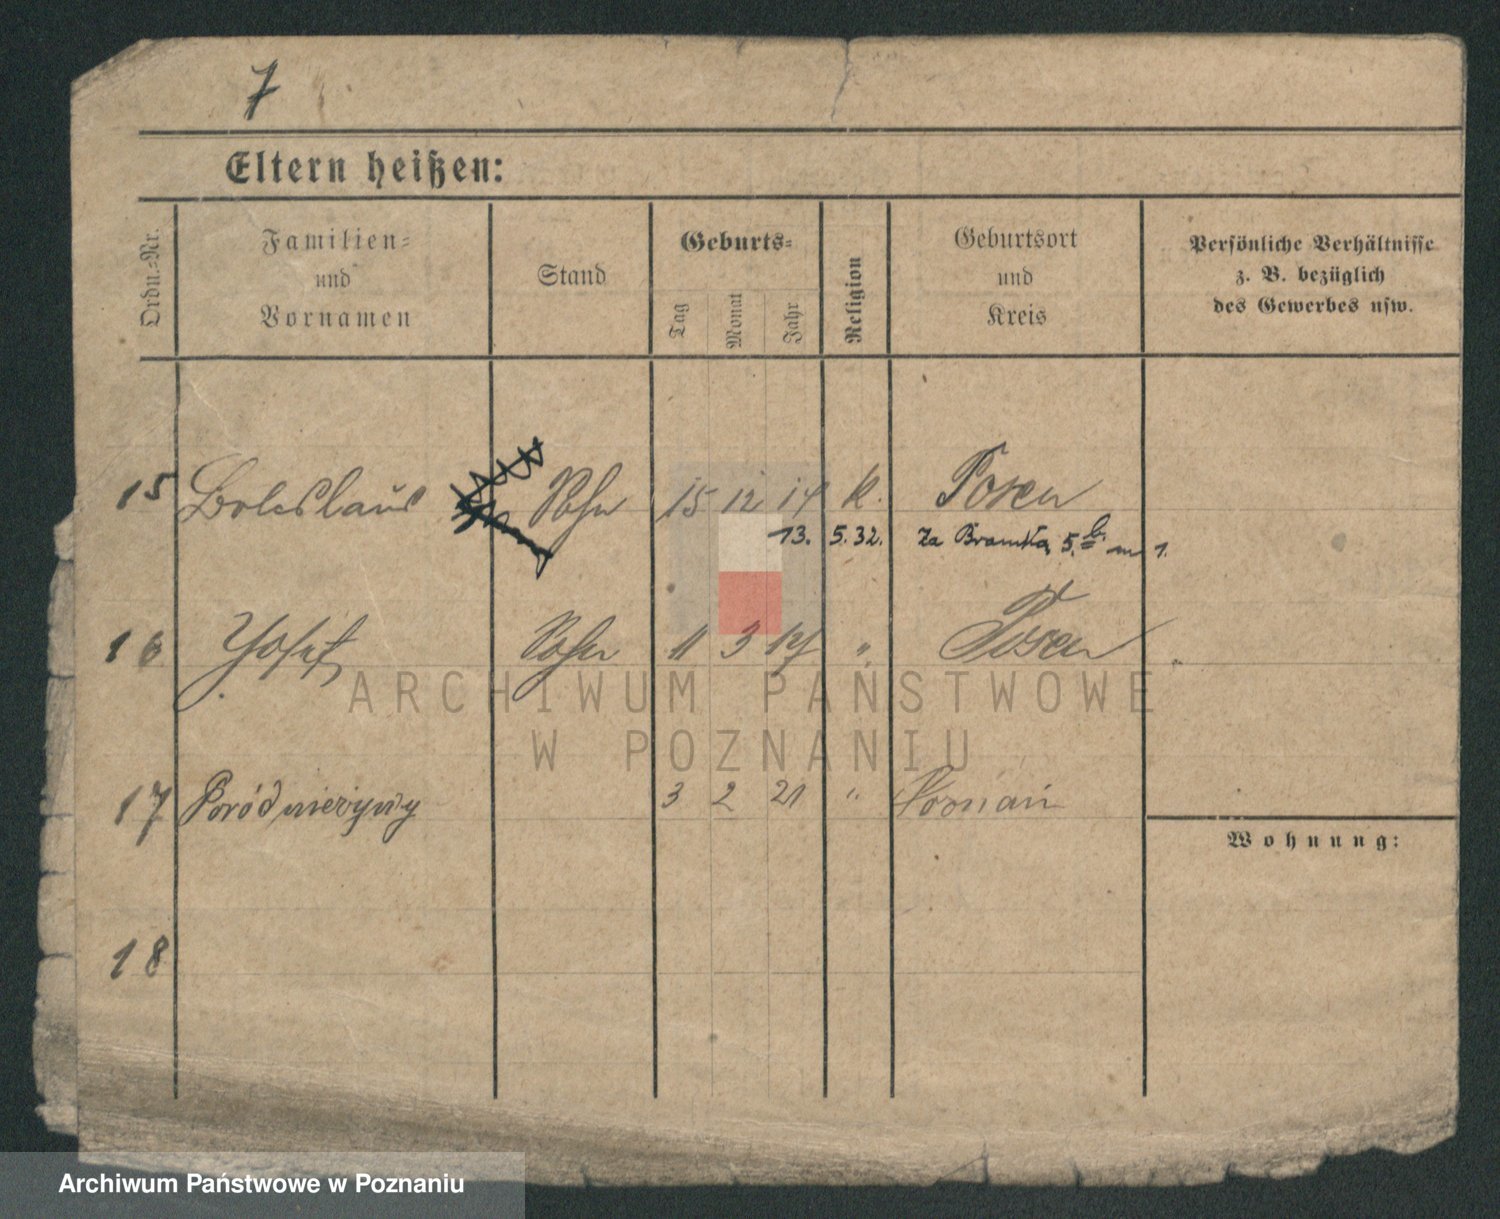 7
Eltern heißen:
Ordn.-Nr.
Familien=
und
Vornamen
Stand
Geburts=
Tag
Monat
Jahr
Religion
Geburtsort
und
Kreis
Persönliche Verhältnisse
z. B. bezüglich
des Gewerbes usw.
15 Boleslaus Sohn 15 12 14 k. Posen
13. 5.32. Za Bramką 5.b. m 1.
16 Josef Sohn 11 3 17 " Posen
ARCHIWUM PAŃSTWOWE
W POZNANIU
17 Poród nieżywy 3 2 21 " Poznań
Wohnung:
18
Archiwum Państwowe w Poznaniu